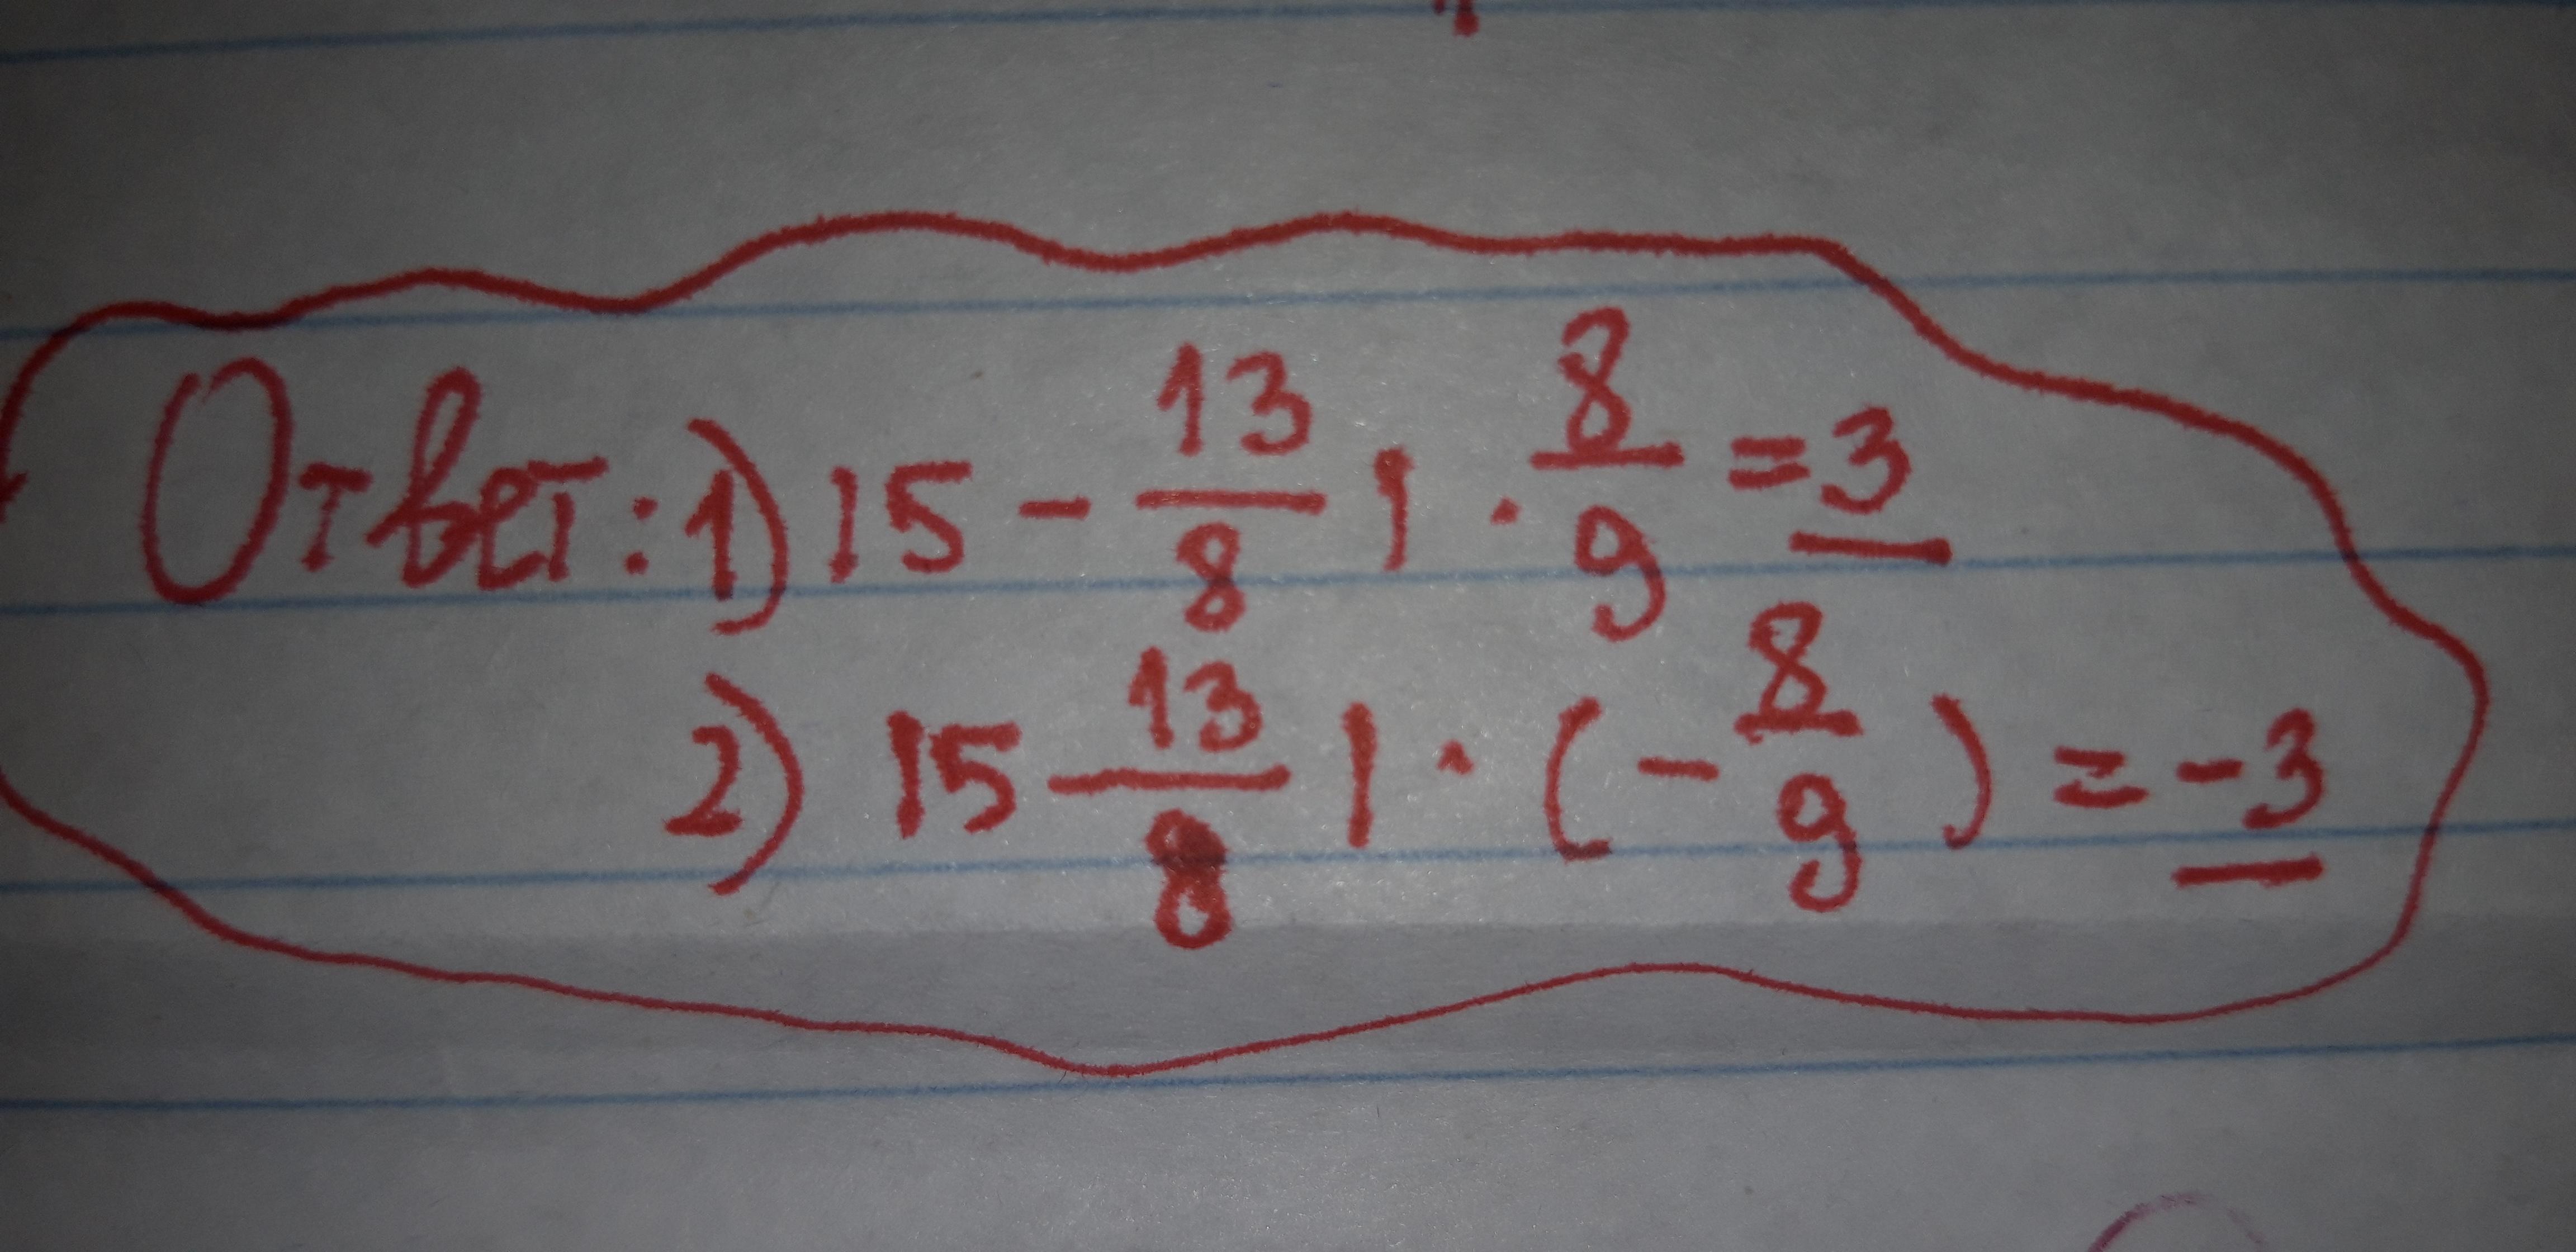 Ответ: 1) 15 - 13/8 | · 8/9 = 3
2) 15 - 13/8 | · (- 8/9) = -3